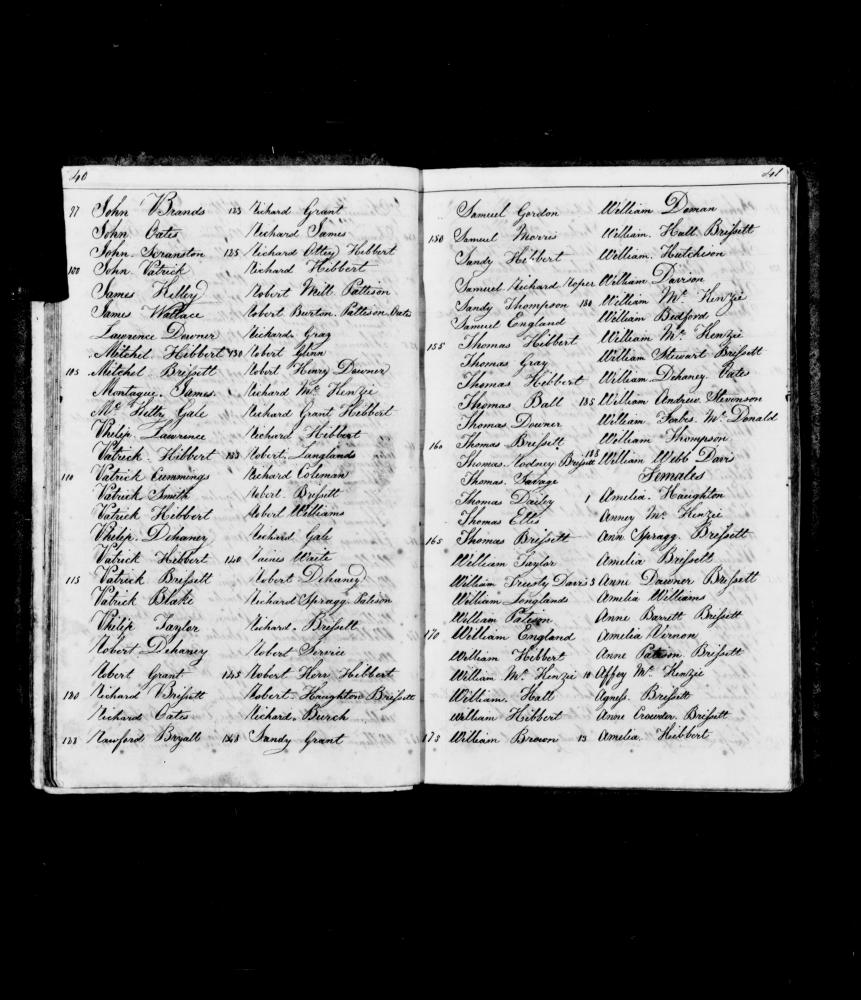 40
97 John Brands
John Oates
John Scranston
100 John Patrick
James Kelley
James Wallace
Lawrence Downer
Mitchel Hibbert
105 Mitchel Brissett
Montague James
Mc Hetty Gale
Philip Lawrence
Patrick Hibbert
110 Patrick Cummings
Patrick Smith
Patrick Hibbert
Philip Dehaney
Patrick Hibbert
115 Patrick Brissett
Patrick Blake
Philip Taylor
Robert Dehaney
Robert Grant
120 Richard Brissett
Richard Oates
Rawford Bryall
123 Richard Grant
Richard James
125 Richard Ottey Hibbert
Richard Hibbert
Robert Mill Patteson
Robert Burton Patteson Oates
Richard Gray
130 Robert Glinn
Robert Henry Downer
Richard Mc Kenzie
Richard Grant Hibbert
Richard Hibbert
Robert Langlands
Richard Coleman
Robert Brissett
Robert Williams
Richard Gale
140 Raines Waite
Robert Dehaney
Richard Spragg Pateson
Richard Brissett
Robert Service
145 Robert Kerr Hibbert
Robert Haughton Brissett
Richard Burch
148 Sandy Grant
41
Samuel Gordon
150 Samuel Morris
Sandy Hibbert
Samuel Richard Roper
Sandy Thompson
Samuel England
155 Thomas Hibbert
Thomas Gray
Thomas Hibbert
Thomas Ball
Thomas Downer
160 Thomas Brissett
Thomas Rodney Brissett
Thomas Savage
Thomas Dailey
Thomas Ellis
165 Thomas Brissett
William Taylor
William Tristy Davis
William Longlands
William Pateson
170 William England
William Hibbert
William Mc Kenzie
William Hall
William Hibbert
175 William Brown
William Doman
William Hall Brissett
William Hutchison
William Davison
180 William Mc Kenzie
William Bedford
William Mc Kenzie
William Stewart Brissett
William Dehaney Oates
185 William Andrew Stevenson
William Forbes Mc Donald
William Thompson
188 William Webb Davis
Females
1 Amelia Haughton
Anney Mc Kenzie
Ann Spragg Brissett
Amelia Brissett
5 Anne Downer Brissett
Amelia Williams
Anne Barrett Brissett
Amelia Vernon
Anne Pateson Brissett
10 Affey Mc Kenzie
Agness Brissett
Anne Crowder Brissett
13 Amelia Hibbert